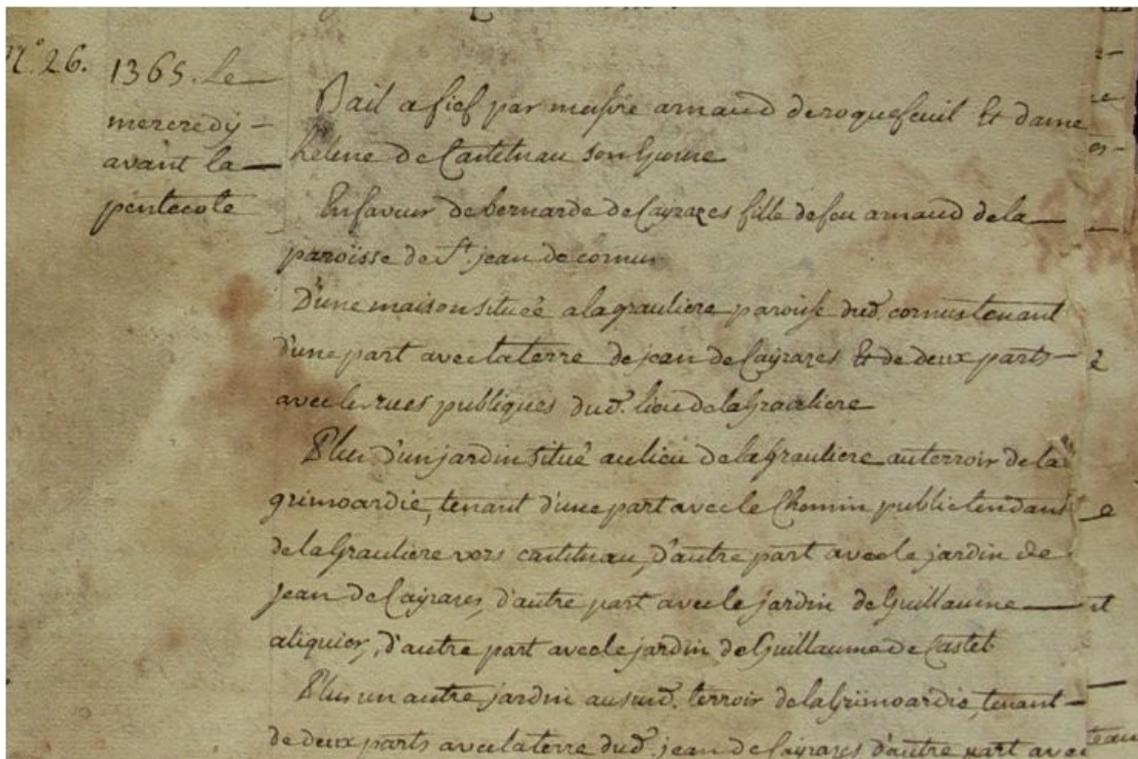 N.° 26.
1365. Le
mercredy
avant la
pentecote
Bail a fief par messire arnaud de roquefeuil et dame
helene de Castelnau son Epouse
En faveur de bernarde de Cayrazes fille de feu arnaud de la
paroisse de St. jean de cornus
D'une maison située a la grauliere paroisse dud. cornus tenant
d'une part avec la terre de jean de Cayrazes et de deux parts
avec les rues publiques dud. lieu de la grauliere
Plus d'un jardin situé au lieu de la grauliere au terroir de la
grimoardie, tenant d'une part avec le Chemin public tendant
de la grauliere vers castelnau, d'autre part avec le jardin de
jean de Cayrazes, d'autre part avec le jardin de Guillaume
aliquier, d'autre part avec le jardin de Guillaume de Castel
Plus un autre jardin au susd. terroir de la Grimoardie, tenant
de deux parts avec la terre dud. jean de Cayrazes d'autre part avec